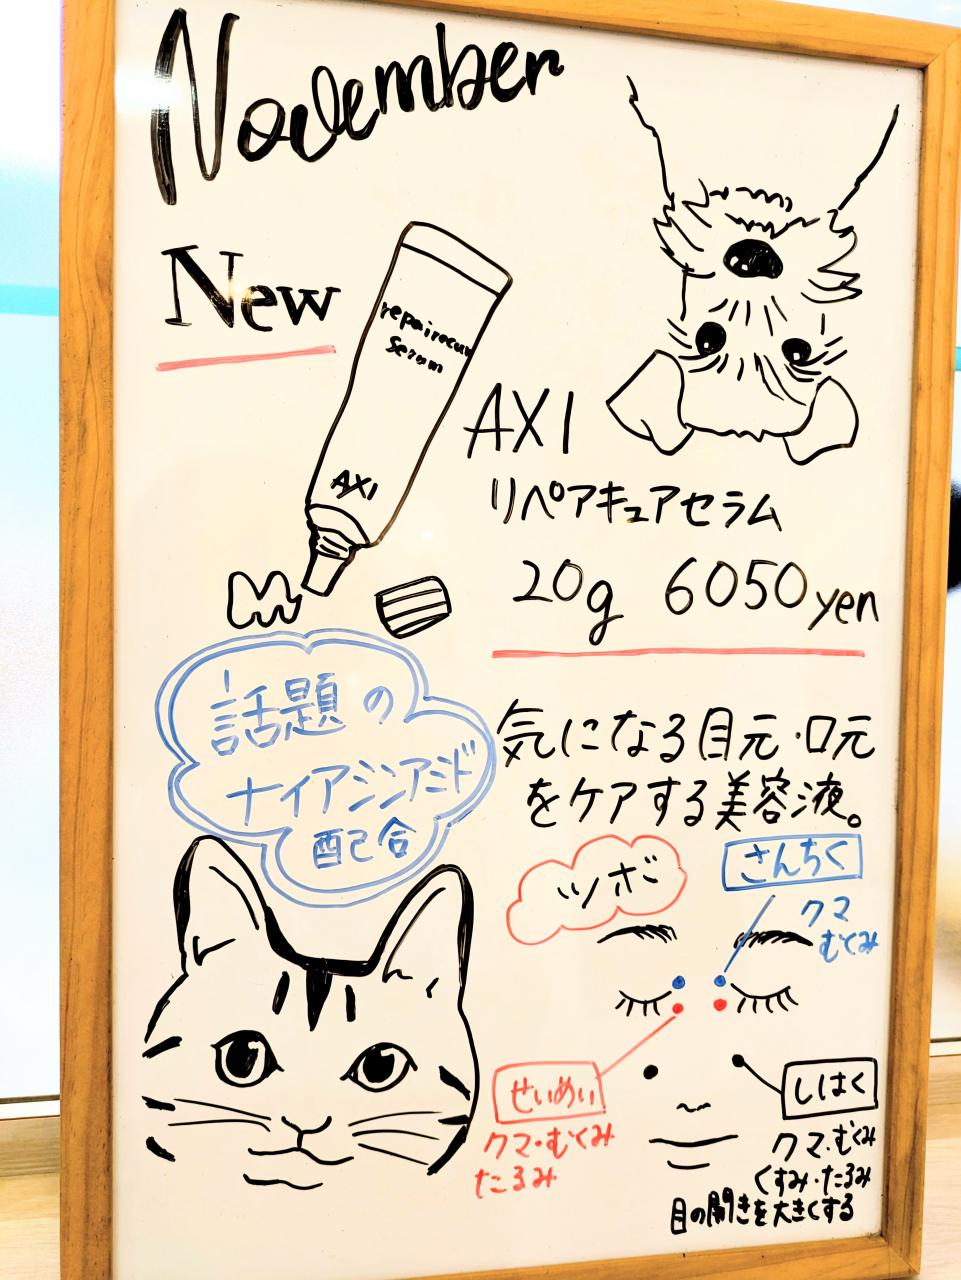 November
New
repairecur
Serum
AXI
AXI
リペアキュアセラム
20g 6050yen
話題の
ナイアシンアミド
配合
気になる目元・口元
をケアする美容液。
ツボ
さんちく
クマ
むくみ
せいめい
クマ・むくみ
たるみ
しはく
クマ・むくみ
くすみ・たるみ
目の開きを大きくする